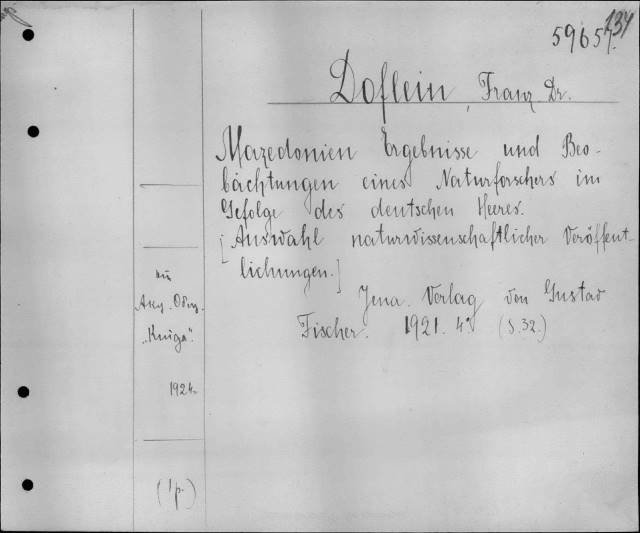 134
59657.
Doflein, Franz Dr.
Mazedonien Ergebnisse und Beo-
bachtungen eines Naturforschers im
Gefolge des deutschen Heeres.
[Auswahl naturwissenschaftlicher Veröffent-
lichungen.]
Jena. Verlag von Gustav
Fischer. 1921. 4° (S. 32.)
від
Акц. Общ.
„Книга".
1924.
(1 р.)